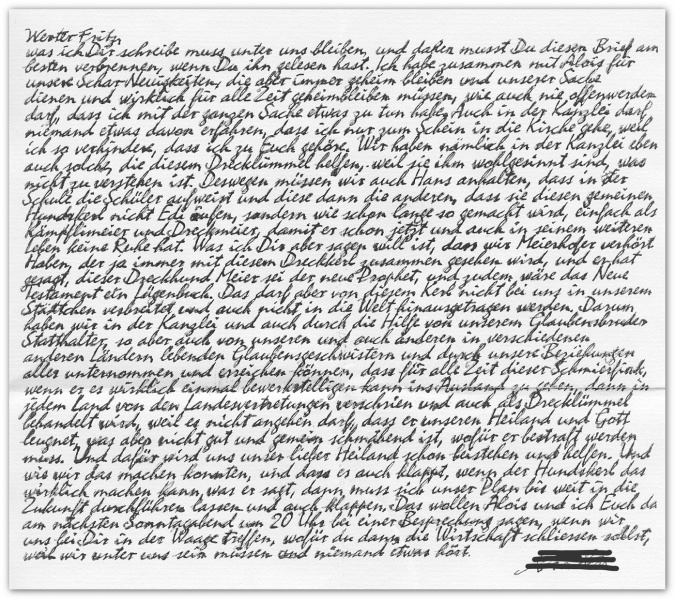 Werter Fritz,
was ich Dir schreibe muss unter uns bleiben, und daher musst Du diesen Brief am
besten verbrennen, wenn Du ihn gelesen hast. Ich habe zusammen mit Alois für
unsere Schar Neuigkeiten, die aber immer geheim bleiben und unserer Sache
dienen und wirklich für alle Zeit geheimbleiben müssen, wie auch nie offenwerden
darf, dass ich mit der ganzen Sache etwas zu tun habe. Auch in der Kanzlei darf
niemand etwas davon erfahren, dass ich nur zum Schein in die Kirche gehe, weil
ich so verhindere, dass ich zu Euch gehöre. Wir haben nämlich in der Kanzlei eben
auch solche, die diesem Drecklümmel helfen, weil sie ihm wohlgesinnt sind, was
nicht zu verstehen ist. Deswegen müssen wir auch Hans anhalten, dass in der
Schule die Schüler aufweist und diese dann die anderen, dass sie diesen gemeinen
Hundskerl nicht Edi rufen, sondern wie schon lange so gemacht wird, einfach als
Kämpflimeier und Dreckmeier, damit er schon jetzt und auch in seinem weiteren
Leben keine Ruhe hat. Was ich Dir aber sagen will ist, dass wir Meierhofer verhört
Haben, der ja immer mit diesem Dreckkerl zusammen gesehen wird, und er hat
gesagt, dieser Dreckhund Meier sei der neue Prophet, und zudem wäre das Neue
Testament ein Lügenbuch. Das darf aber von diesem Kerl nicht bei uns in unserem
Stättchen verbreitet und auch nicht in die Welt hinausgetragen werden. Darum
haben wir in der Kanzlei und auch durch die Hilfe von unserem Glaubensbruder
Statthalter, so aber auch von unseren und auch anderen in verschiedenen
anderen Ländern lebenden Glaubensgeschwistern und durch unsere Beziehungen
alles unternommen und erreichen können, dass für alle Zeit dieser Schmierfink,
wenn er es wirklich einmal bewerkstelligen kann ins Ausland zu gehen, dann in
jedem Land von den Landesvertretungen verschrien und auch als Drecklümmel
behandelt wird, weil es nicht angehen darf, dass er unseren Heiland und Gott
leugnet, was aber nicht gut und gemein schmähend ist, wofür er bestraft werden
muss. Und dafür wird uns unser lieber Heiland schon beistehen und helfen. Und
wie wir das machen konnten, und dass es auch klappt, wenn der Hundskerl das
wirklich machen kann was er sagt, dann muss sich unser Plan bis weit in die
Zukunft durchführen lassen und auch klappen. Das wollen Alois und ich Euch da
am nächsten Sonntagabend um 20 Uhr bei einer Besprechung sagen, wenn wir
uns bei Dir in der Waage treffen, wofür du dann die Wirtschaft schliessen sollst,
weil wir unter uns sein müssen und niemand etwas hört.